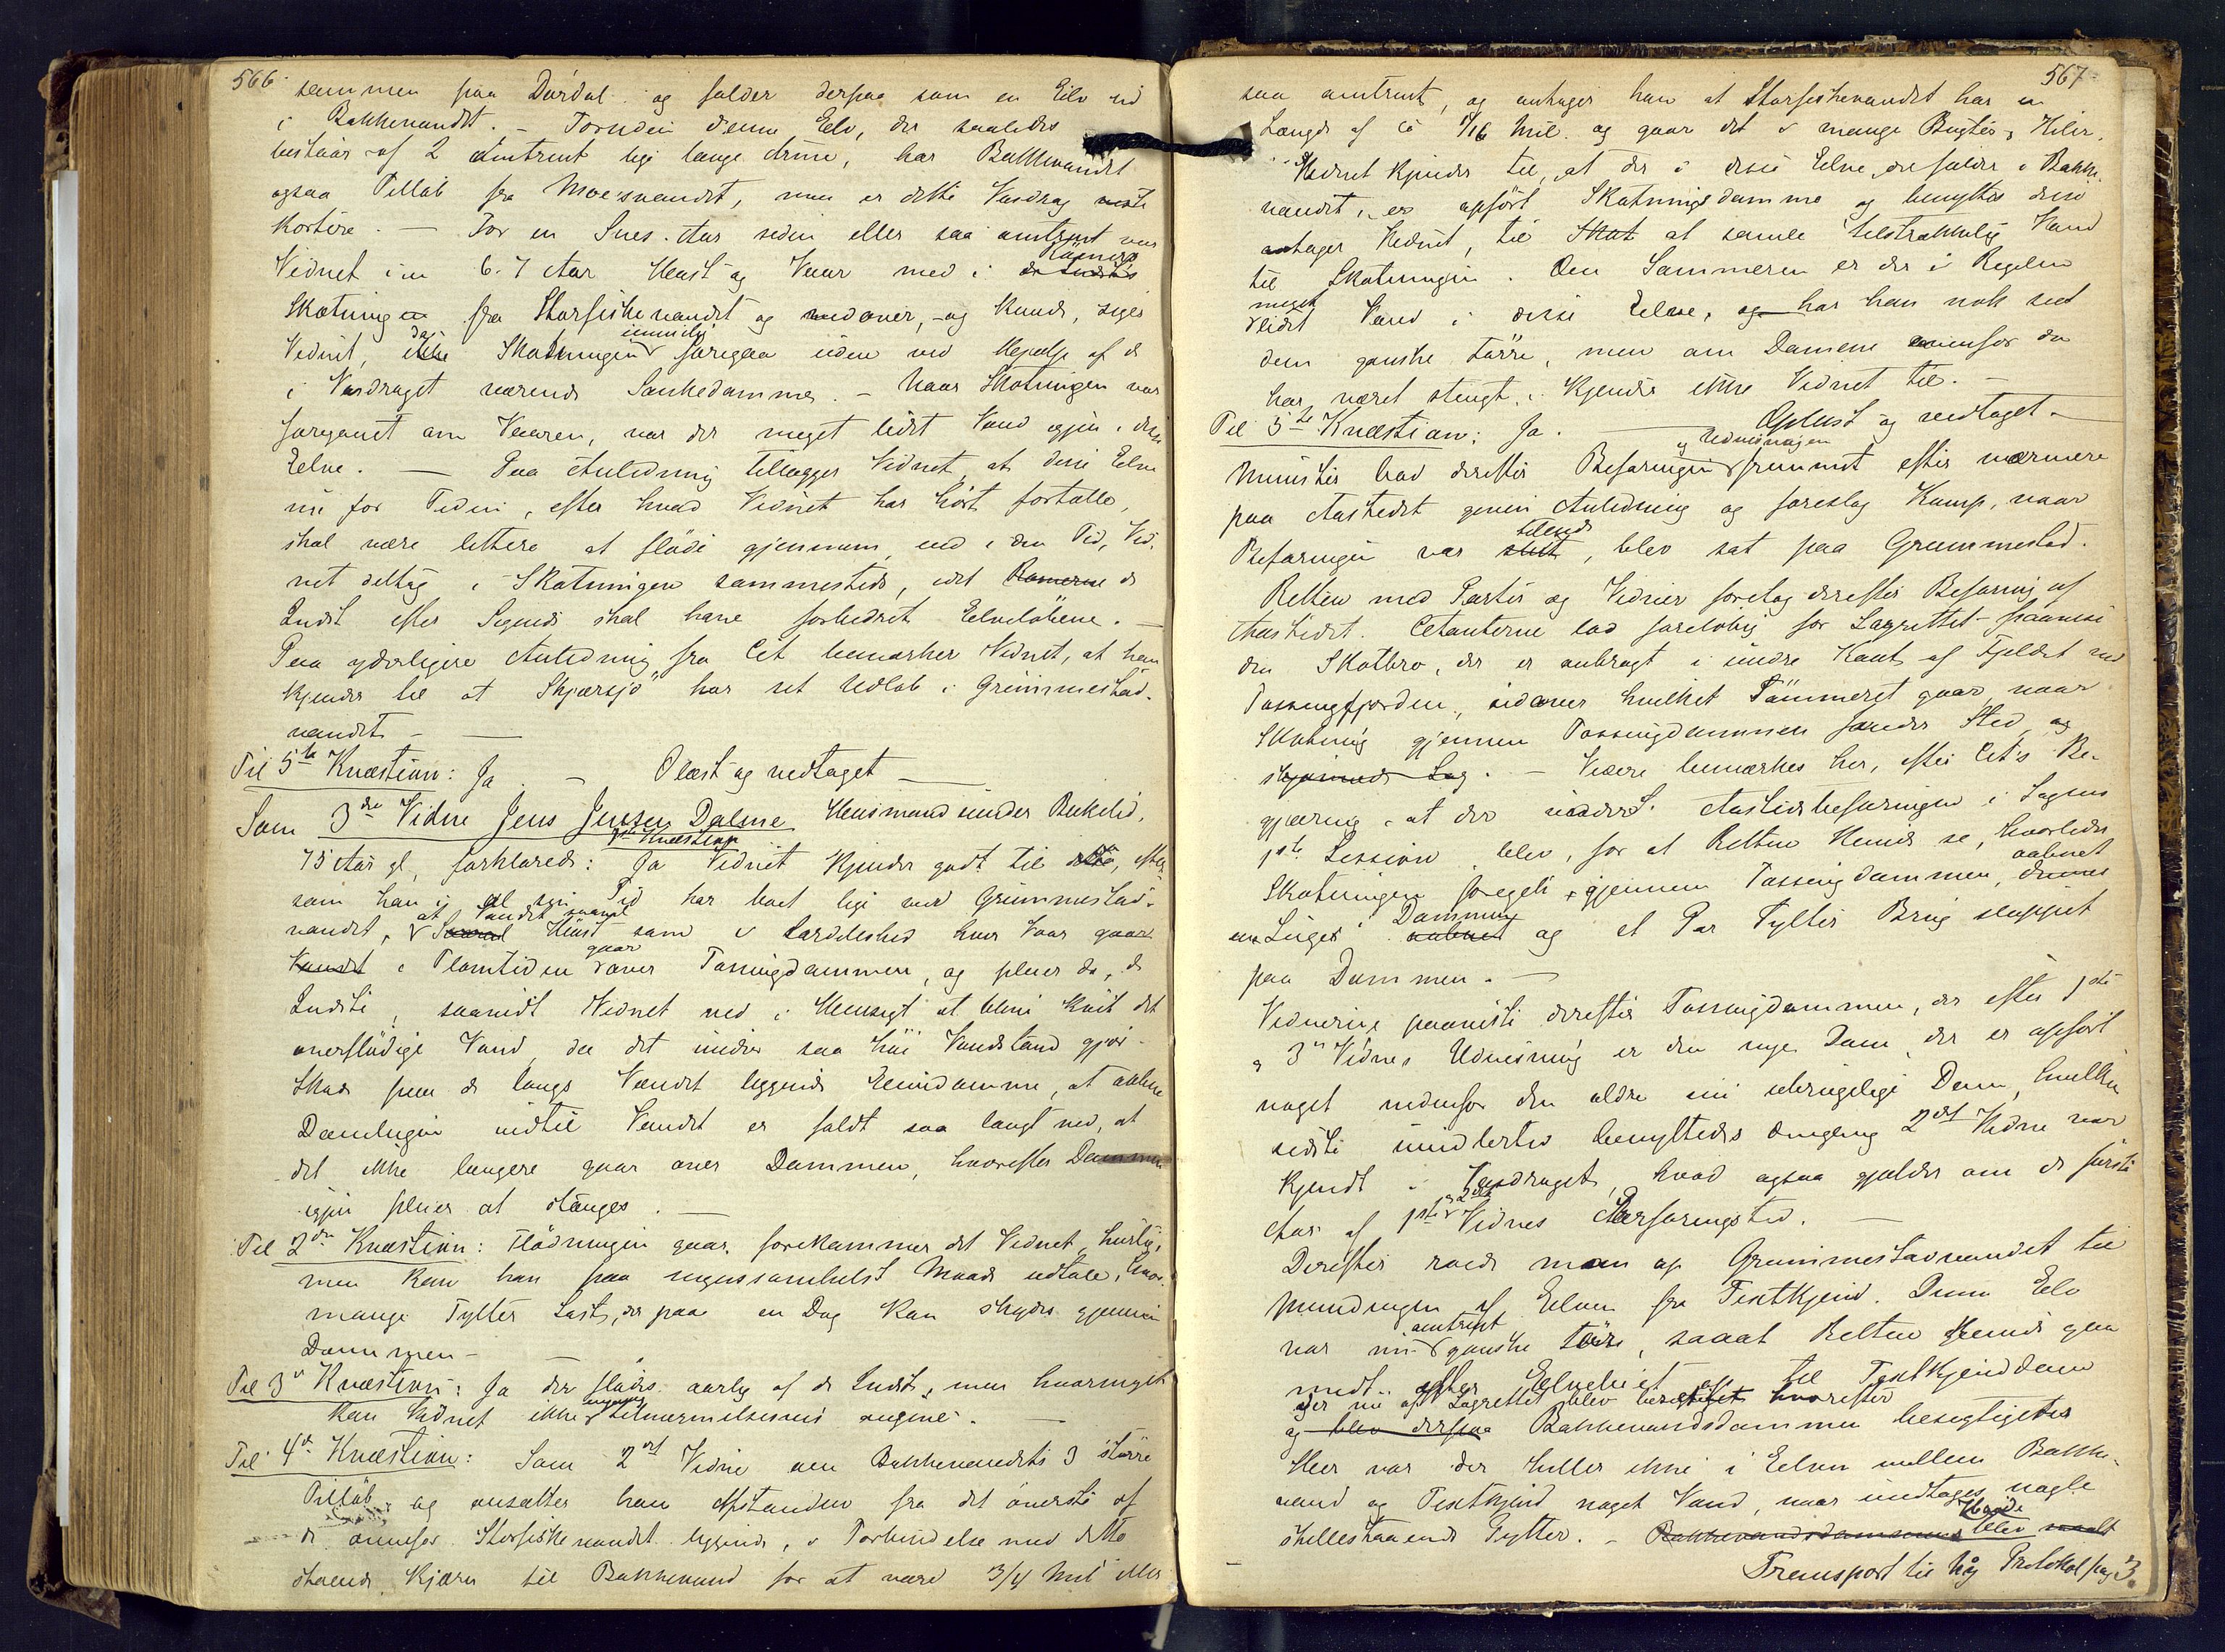 566
sammen paa Dørdal og falder derpaa som en Elv ud
i Bakkevandet. – Foruden denne Elv, der saaledes
bestaar af 2 omtrent lige lange Arme, har Bakkevandet
ogsaa Tilløb fra Moesvandet, men er dette Vasdrag
kortere. – For en Snes Aar siden eller saa omtrent var
Ramers
Vidnet i en 6-7 Aar Høst og Vaar med i de
Skotningen fra Storfiskevandet og nedover, – og kunde, siger
da umulig
Vidnet, ikke Skotningen foregaa uden ved Hjælp af de
i Vasdraget værende Sankedamme. – Naar Skotningen var
foregaaet om Vaaren, var der meget lidet Vand igjen i disse
Elve. – Paa Anledning tillægger Vidnet, at disse Elve
nu for Tiden, efter hvad Vidnet har hørt fortælle,
skal være lettere at fløde gjennem, end i den Tid, Vid-
net deltog i Skotningen sammesteds, idet Ramerne de
Indst. efter Sigende skal have forbedret Elveløbene. –
Paa yderligere Anledning fra Cit. bemærker Vidnet, at han
kjender til at Skjærsjø har sit Udløb i Grummestad-
vandet –
Til 5te Kvæstion: Ja. – Oplæst og vedtaget –
Som 3die Vidne Jens Jensen Dalene Huusmand under Bukelid,
1ste Kvæstion
75 Aar gl., forklarede: Ja Vidnet kjender godt til dette, efter-
som han i al sin Tid har boet lige ved Grummestad-
at Vandet saavel
vandet, Saavel Høst som i Særdeleshed hver Vaar gaar
gaar
Vandet i Flomtiden over Tossingdammen, og pleier da, de
Indste, saavidt Vidnet ved i Hensigt at blive kvit det
overflødige Vand, da det under saa høi Vandstand gjør
Skade paa de langs Vandet liggende Eiendomme, at aabne
Dæmningen indtil Vandet er faldt saa langt ned, at
det ikke længere gaar over Dammen, hvorefter Dammen
igjen pleier at stænges. –
Til 2den Kvæstion: Flødningen gaar, forekommer det Vidnet, hurtig,
men kan han paa ingensomhelst Maade udtale, hvor-
mange Tylter Last, der paa en Dag kan skydes gjennem
Dammen –
Til 3die Kvæstion: Ja der flødes aarlig af de Indst., men hvormeget
kan Vidnet ikke tilnærmelsesvis angive. –
Til 4de Kvæstion: Som 2det Vidne om Bakkevandets 3 større
Tilløb, og ansætter han Afstanden fra det øverste af
de ovenfor Storfiskevandet liggende, i Forbindelse med dette
staaende Kjærn til Bakkevand for at være 3/4 Mil eller
567
saa omtrent, og antager han at Storfiskevandet har en
Længde af ca 1/16 Mil og gaar det i mange Bugter og Kiler.
Vidnet kjender til, at der i disse Elve, der falder i Bakke-
vandet, er opført Skotningsdamme og benyttes disse
antager Vidnet, til Skot at samle tilstrækkelig Vand
til Skotningen. Om Sommeren er der i Regelen
meget
lidet Vand i disse Elve, og har han nok seet
dem ganske tørre, men om Damene ovenfor da
har været stengt, kjender ikke Vidnet til. –
Til 5te Kvæstion: Ja. – Oplæst og vedtaget –
og Udvisningen
Minister bad derefter Befaringen fremmet efter nærmere
paa Aastedet given Anledning og foreslog Kamp, naar
tilende
Befaringen var slut, blev sat paa Grummestad.
Retten med Parter og Vidner foretog derefter Befaring af
Aastedet. Citanterne lod foreløbig for Lagrettet paavise
den Skotbro, der er anbragt i undre Kant af Fjeldet ved
Tossingfjorden, udover hvilket Tømmeret gaar, naar
Skotning gjennem Tossingdammen finder Sted, og
. – Videre bemærkes her, efter Cit's Be-
gjæring, at der under Aastedsbefaringen i Sagens
1ste Session blev, for at Retten kunde se, hvorledes
aabnet
Skotningen foregik gjennem Tossingdammen,
Dammen
en Luge aabnet og et Par Tylter Brug sluppet
paa Dammen. –
Vidnerne paaviste derefter Tossingdammen, der efter 1ste
og 3die Vidnes Udvisning er den nye Dam, der er opført
noget nedenfor den ældre nu ubrugelige Dam, hvilken
sidste imidlertid benyttedes dengang 2det Vidne var
kjendt i Vasdraget, hvad ogsaa gjælder om de første
og 2det
Aar af 1ste Vidnes Erfaringstid. –
Derefter roede man op Grummestadvandet til
Mundingen af Elven fra Tixtkjend. Denne Elv
omtrent
var nu ganske tør, saaat Retten kunde gaa
midt efter Elveleiet op til Tixtkjenddam
der nu af Lagrettet blev besigtiget hvorefter
og blev derpaa Bakkevandsdammen besigtigedes
Her var der heller ikke i Elven mellem Bakke-
vand og Tixtkjend noget Vand, naar undtages nogle
Høide
stillestaaende Pytter. – Bakkevandsdammens blev maalt
Transport til ny Protokol pag 3.